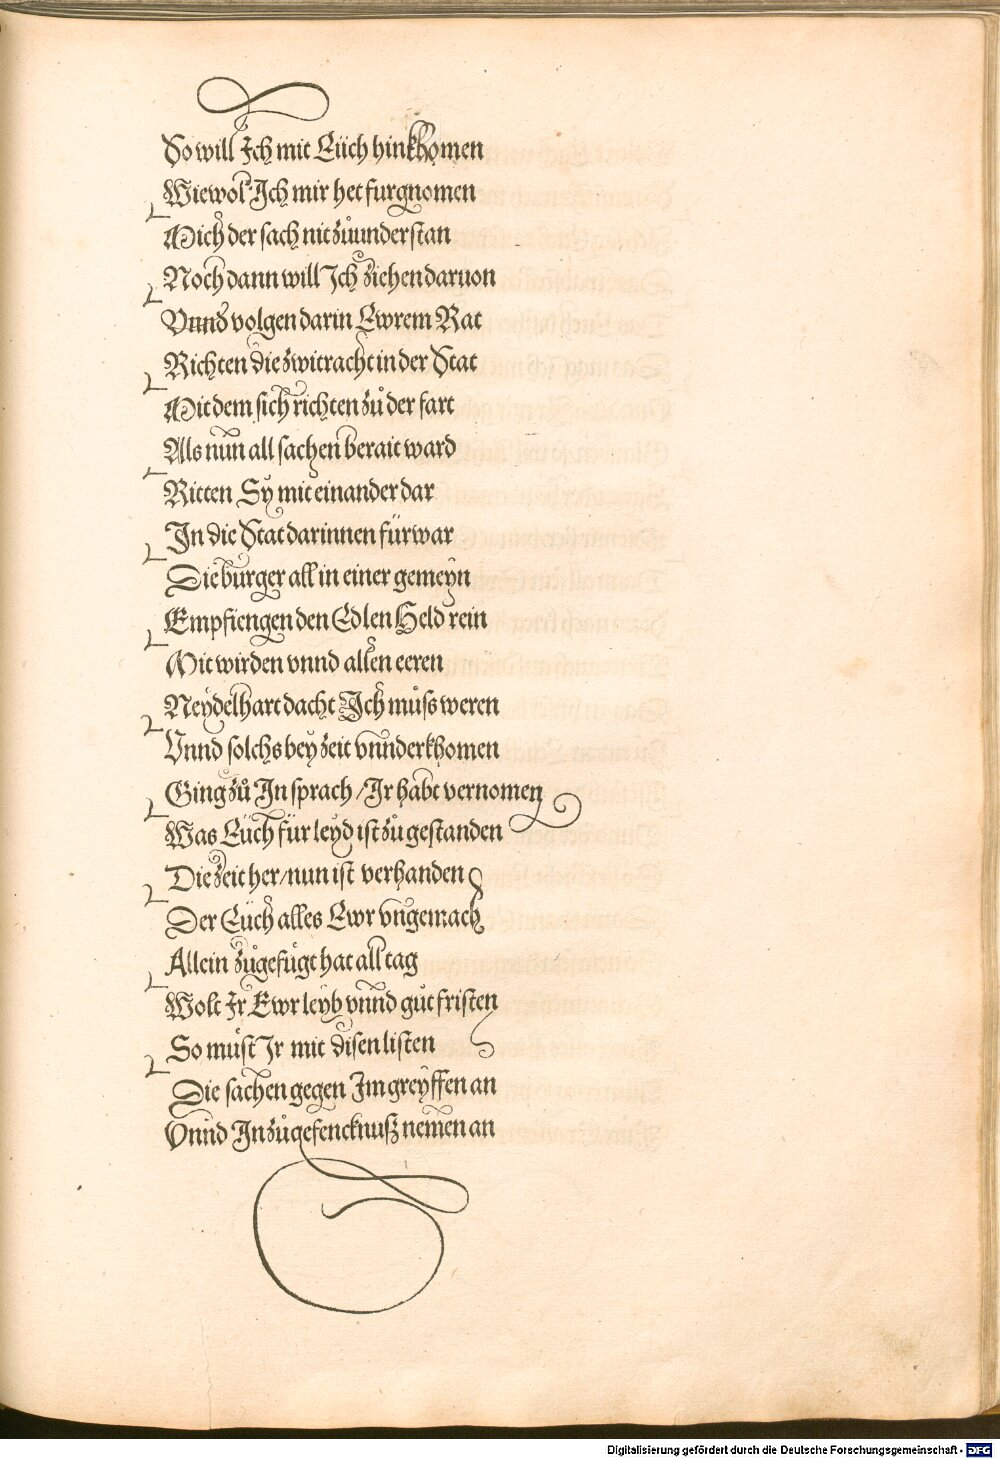 So will Ich mit Eüch hinkhomen
Wiewol Ich mir het furgnomen
Mich der sach nit zůunderstan
Noch dann will Ich ziehen daruon
Vnnd volgen darin Ewrem Rat
Richten die zwitracht in der Stat
Mit dem sich richten zů der fart
Als nůn all sachen berait ward
Ritten Sy mit einander dar
In die Stat darinnen fürwar
Die burger all in einer gemeyn
Empfiengen den Edlen Held rein
Mit wirden vnnd allen eeren
Neydelhart dacht Ich můſs weren
Vnnd solchs bey zeit vnnderkhomen
Ging zů In sprach / Ir habt vernomen
Was Eüch für leyd ist zů gestanden
Die zeit her / nun ist verhanden
Der Eüch alles Ewr vngemach
Allein zůgefügt hat all tag
Wolt Ir Ewr leyb vnnd gůt fristen
So můst Ir mit disen listen
Die sachen gegen Im greyffen an
Vnnd In zů gefencknuß nemen an
Digitalisierung gefördert durch die Deutsche Forschungsgemeinschaft - DFG